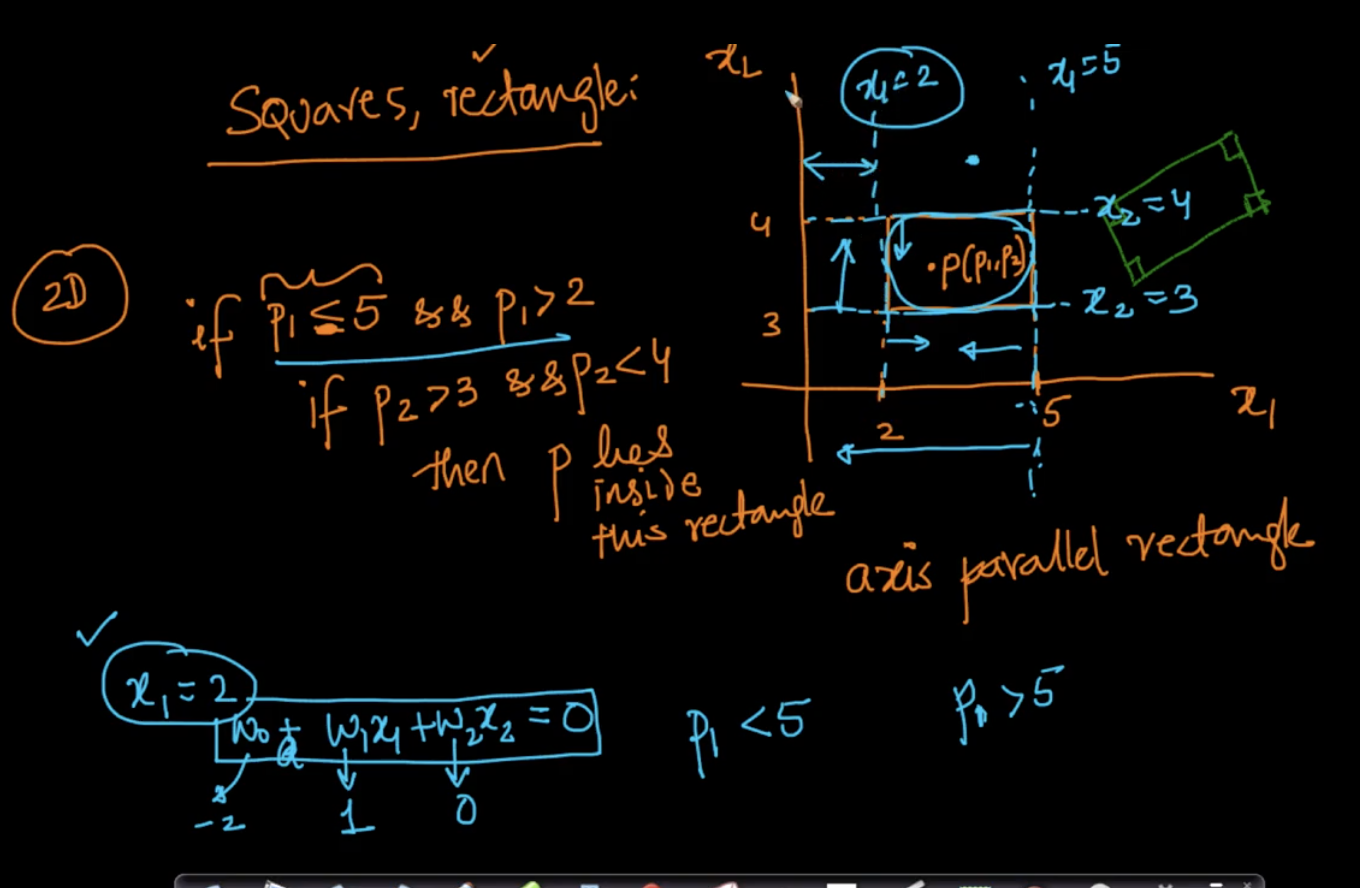 Squares, rectangle:
2D
if p₁ ≤ 5 && p₁ > 2
if p₂ > 3 && p₂ < 4
then p lies
inside
this rectangle
x₂
x₁ = 2
x₁ = 5
4
x₂ = 4
.p(p₁,p₂)
3
x₂ = 3
2
5
x₁
axis parallel rectangle
x₁ = 2
w₀ + w₁x₁ + w₂x₂ = 0
-2
1
0
p₁ < 5
p₁ > 5